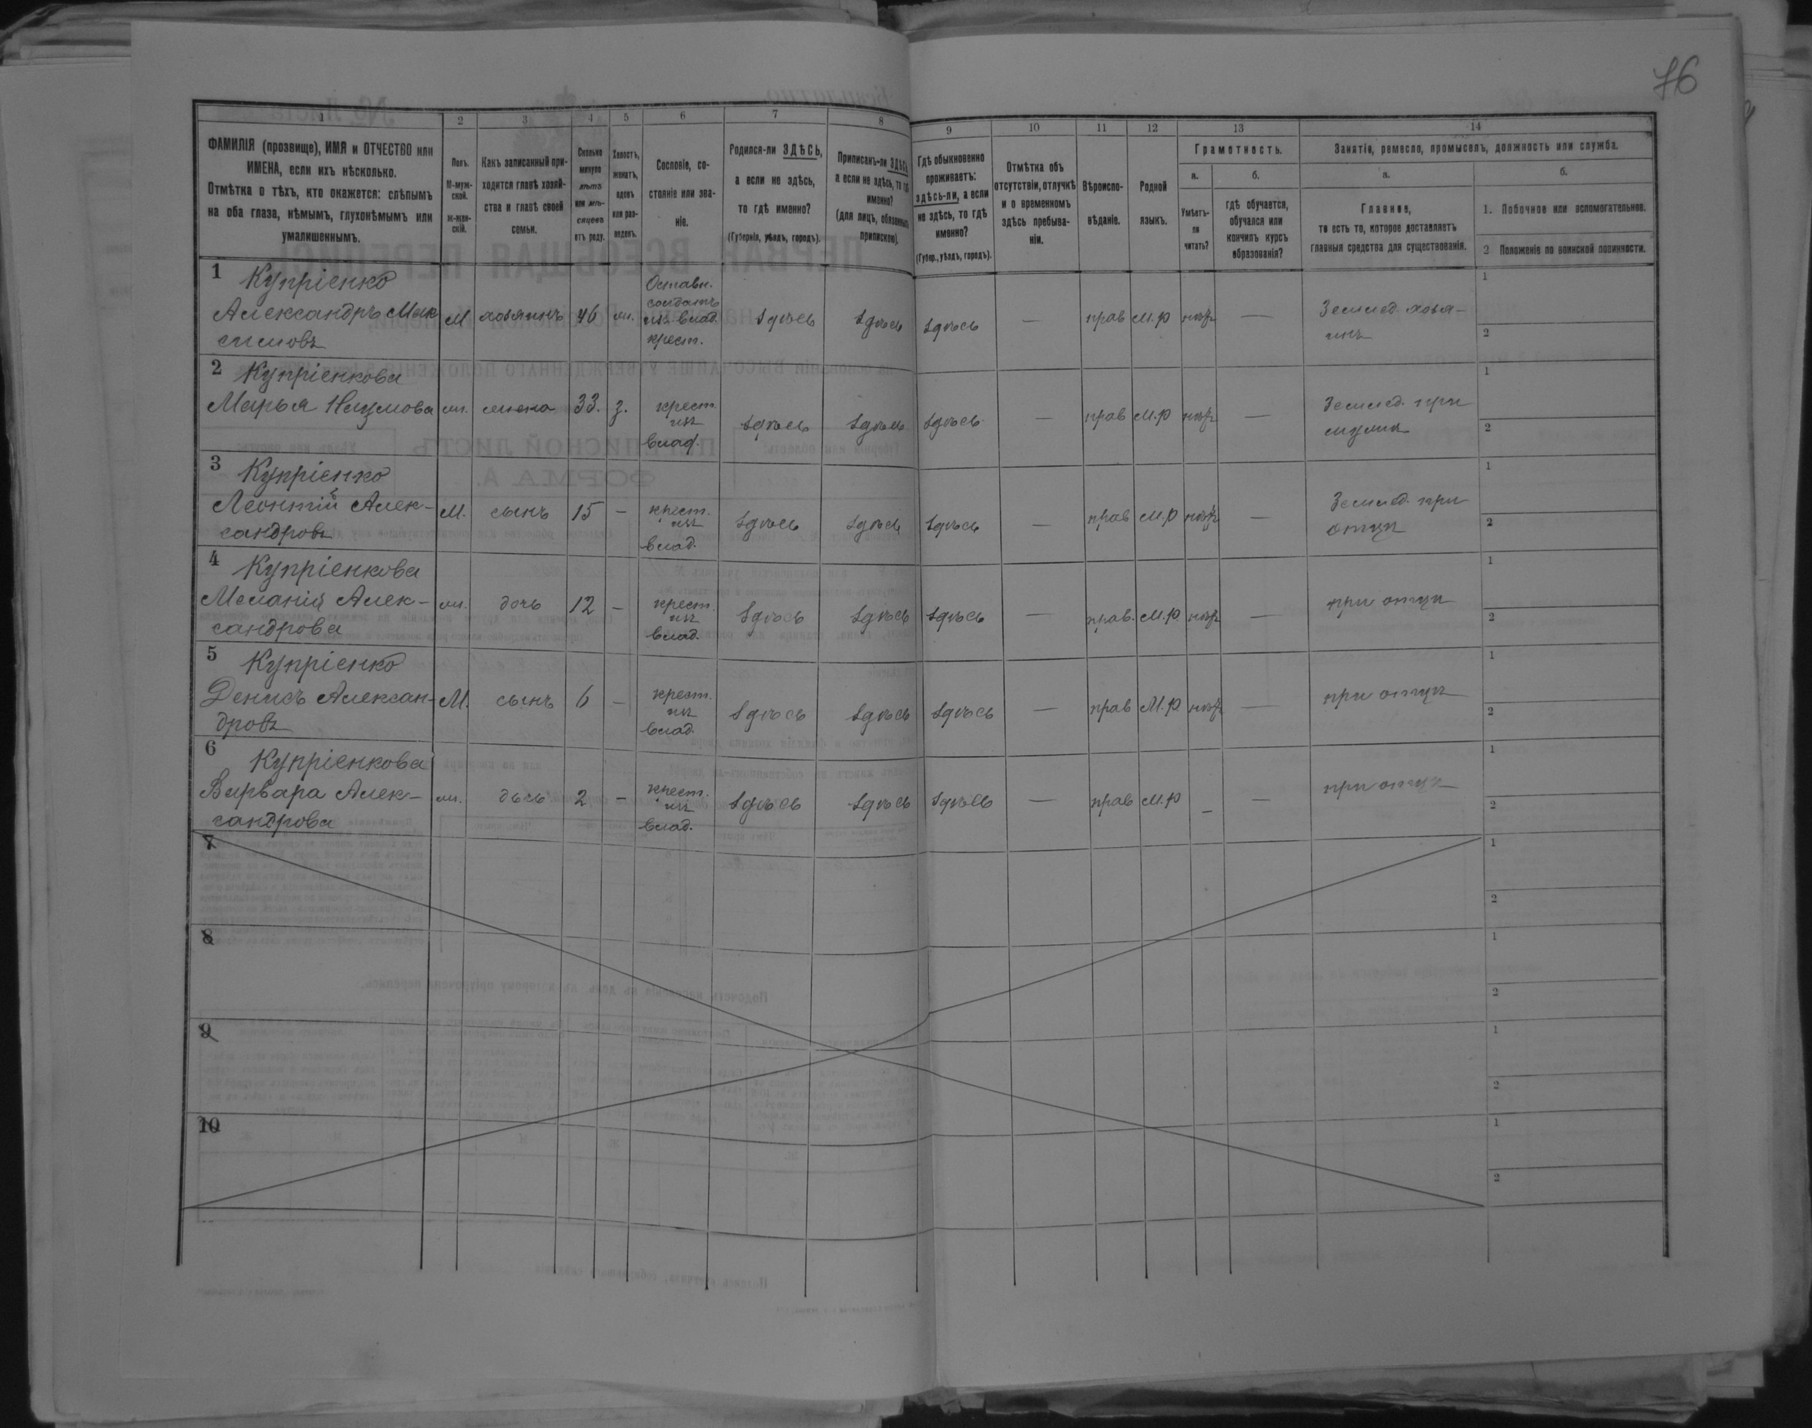 76
1 2 3 4 5 6 7 8 9 10 11 12 13 14
ФАМИЛІЯ (прозвище), ИМЯ и ОТЧЕСТВО или
ИМЕНА, если ихъ нѣсколько.
Отмѣтка о тѣхъ, кто окажется: слѣпымъ
на оба глаза, нѣмымъ, глухонѣмымъ или
умалишеннымъ.
Полъ.
М-муж-
ской.
ж-жен-
скій.
Какъ записанный при-
ходится главѣ хозяй-
ства и главѣ своей
семьи.
Сколько
минуло
лѣтъ
или мѣ-
сяцевъ
отъ роду.
Холостъ,
женатъ,
вдовъ
или раз-
веденъ.
Сословіе, со-
стояніе или зва-
ніе.
Родился-ли ЗДѢСЬ,
а если не здѣсь,
то гдѣ именно?
(Губернія, уѣздъ, городъ).
Приписанъ-ли ЗДѢСЬ,
а если не здѣсь, то гдѣ
именно?
(для лицъ, обязанныхъ
припискою).
Гдѣ обыкновенно
проживаетъ:
здѣсь-ли, а если
не здѣсь, то гдѣ
именно?
(Губер., уѣздъ, городъ).
Отмѣтка объ
отсутствіи, отлучкѣ
и о временномъ
здѣсь пребыва-
ніи.
Вѣроиспо-
вѣданіе.
Родной
языкъ.
Грамотность.
а.
Умѣетъ-
ли
читать?
б.
гдѣ обучается,
обучался или
кончилъ курсъ
образованія?
Занятіе, ремесло, промыселъ, должность или служба.
а.
Главное,
то есть то, которое доставляетъ
главныя средства для существованія.
б.
1. Побочное или вспомогательное.
2 Положеніе по воинской повинности.
1 Купріенко
Александръ Мак
симовъ
М хозяинъ 46 ж.
Оставн.
солдатъ
из влад.
крест.
здѣсь здѣсь здѣсь — прав М.р нѣт —
Землед. хозя-
инъ
1
2
2 Купріенкова
Марья Наумова ж. жена 33. з.
крест.
из
влад.
здѣсь здѣсь здѣсь — прав М.р нѣт —
Землед. при
мужѣ
1
2
3 Купріенко
Леонтій Алек-
сандровъ
М. сынъ 15 —
крест.
из
влад.
здѣсь здѣсь здѣсь — прав М.р нѣт —
Землед. при
отцѣ
1
2
4 Купріенкова
Меланія Алек-
сандрова
ж. дочь 12 —
крест.
из
влад.
здѣсь здѣсь здѣсь — прав. М.р нѣт —
при отцѣ
1
2
5 Купріенко
Денисъ Алексан-
дровъ
М. сынъ 6 —
крест.
из
влад.
здѣсь здѣсь здѣсь — прав М.р нѣт —
при отцѣ
1
2
6 Купріенкова
Варвара Алек-
сандрова
ж. дочь 2 —
крест.
из
влад.
здѣсь здѣсь здѣсь — прав М.р – —
при отцѣ
1
2
7
1
2
8
1
2
9
1
2
10
1
2